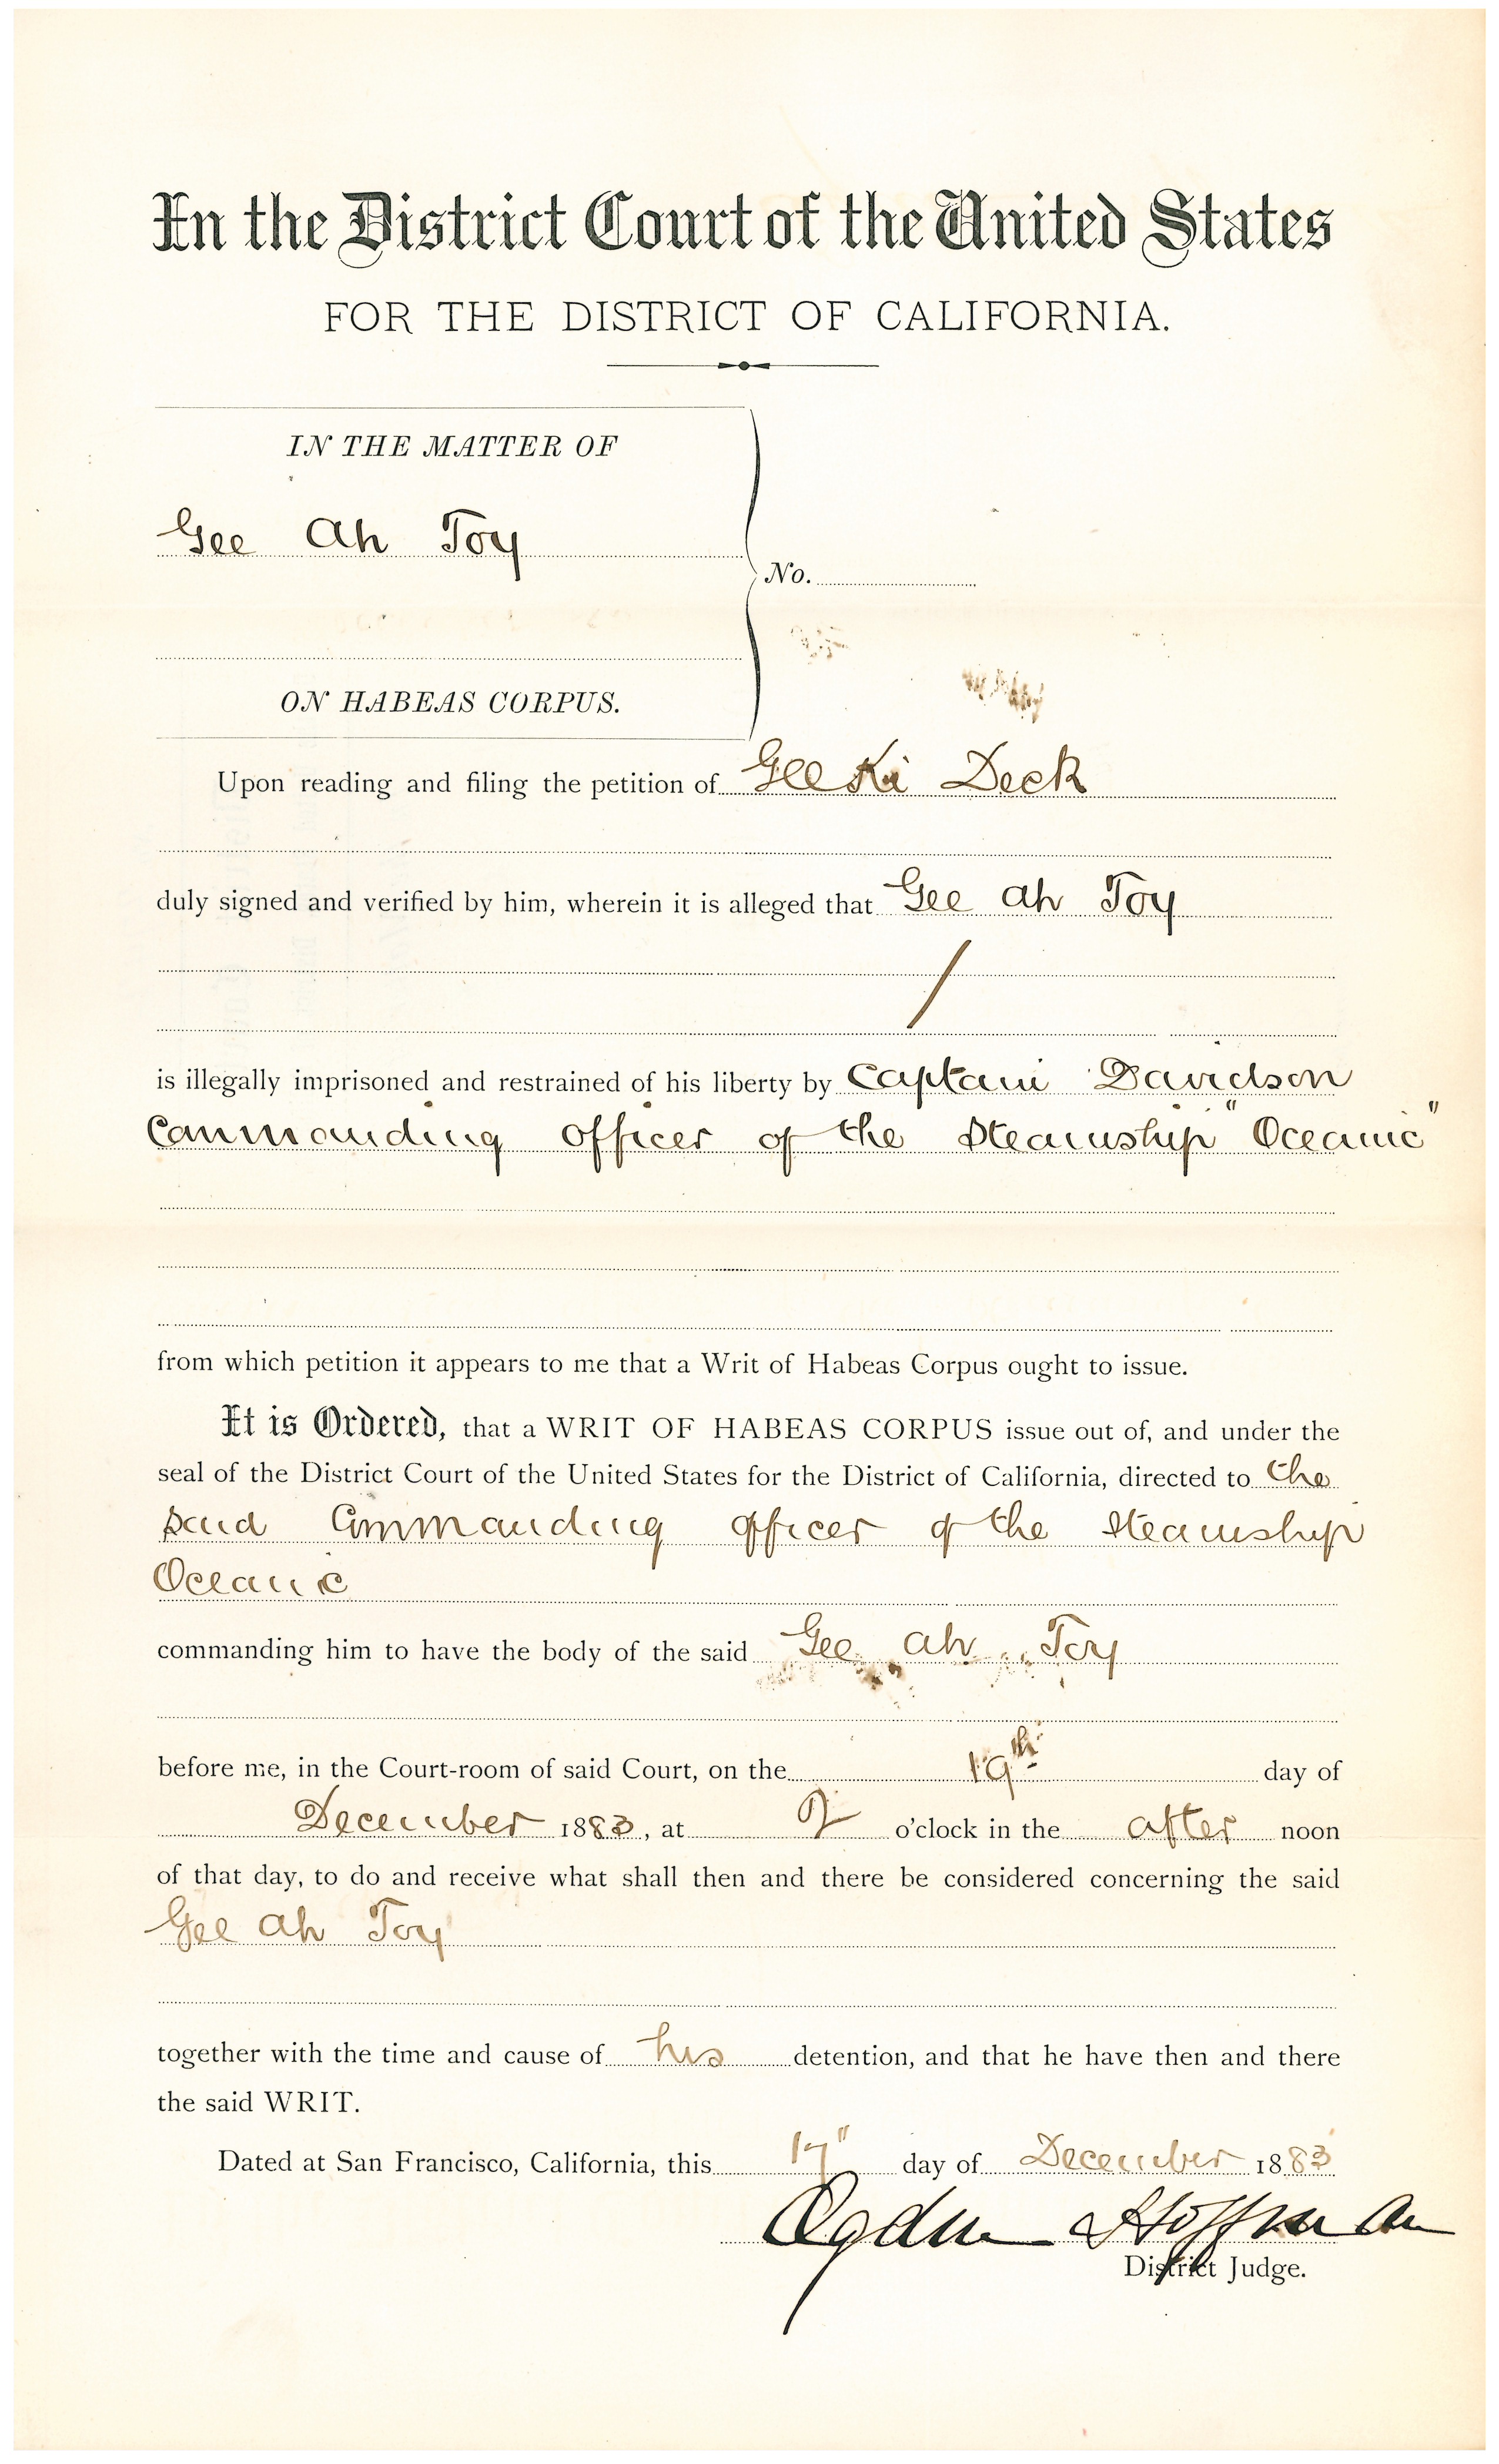 In the District Court of the United States
FOR THE DISTRICT OF CALIFORNIA.
IN THE MATTER OF
Gee Ah Toy
No.
ON HABEAS CORPUS.
Upon reading and filing the petition of Gee Ki Deck
duly signed and verified by him, wherein it is alleged that Gee Ah Toy
is illegally imprisoned and restrained of his liberty by Captain Davidson
Commanding officer of the Steamship "Oceanic"
from which petition it appears to me that a Writ of Habeas Corpus ought to issue.
It is Ordered, that a WRIT OF HABEAS CORPUS issue out of, and under the
seal of the District Court of the United States for the District of California, directed to the
said Commanding officer of the Steamship
Oceanic
commanding him to have the body of the said Gee Ah Toy
before me, in the Court-room of said Court, on the 19th day of
December 1883, at 2 o'clock in the after noon
of that day, to do and receive what shall then and there be considered concerning the said
Gee Ah Toy
together with the time and cause of his detention, and that he have then and there
the said WRIT.
Dated at San Francisco, California, this 17" day of December 1883
Ogden Hoffman
District Judge.